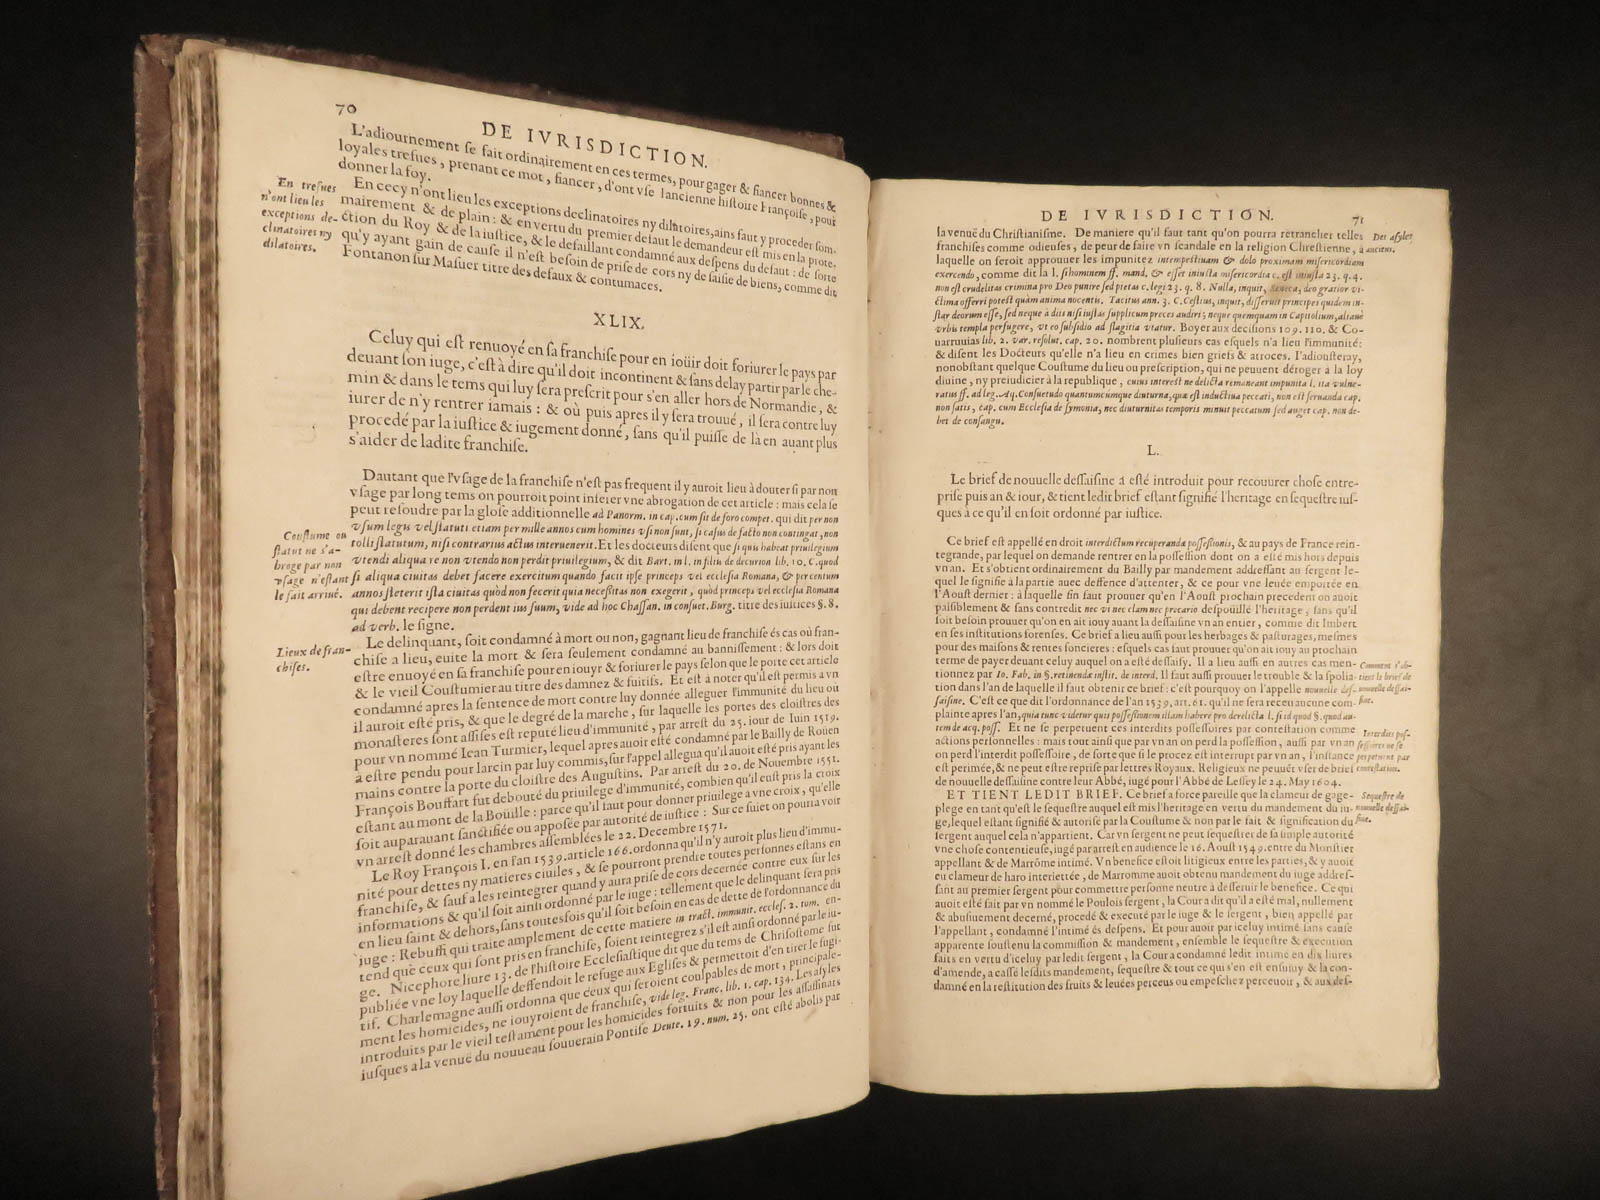 70
DE IVRISDICTION.
L'adiournement ſe fait ordinairement en ces termes, pour gager & fiancer bonnes &
loyales treſues, prenant ce mot, fiancer, d'ont vſe l'ancienne hiſtoire Françoiſe, pour
donner la foy.
En cecy n'ont lieu les exceptions declinatoires ny dilatoires, ains faut y proceder ſom-
mairement & de plain: & en vertu du premier defaut le demandeur eſt mis en la prote-
ction du Roy & de la iuſtice, & le defaillant condamné aux deſpens du defaut: de ſorte
qu'y ayant gain de cauſe il n'eſt beſoin de priſe de cors ny de ſaiſie de biens, comme dit
Fontanon ſur Maſuer titre des defaux & contumaces.
En treſues
n'ont lieu les
exceptions de-
clinatoires ny
dilatoires.
XLIX.
Celuy qui eſt renuoyé en ſa franchiſe pour en ioüir doit foriurer le pays par
deuant ſon iuge, c'eſt à dire qu'il doit incontinent & ſans delay partir par le che-
min & dans le tems qui luy ſera preſcrit pour s'en aller hors de Normandie, &
iurer de n'y rentrer iamais: & où puis apres il y ſera trouué, il ſera contre luy
procedé par la iuſtice & iugement donné, ſans qu'il puiſſe de là en auant plus
s'aider de ladite franchiſe.
Dautant que l'vſage de la franchiſe n'eſt pas frequent il y auroit lieu à douter ſi par non
vſage par long tems on pourroit point inferer vne abrogation de cet article: mais cela ſe
peut reſoudre par la gloſe additionnelle ad Panorm. in cap. cum ſit de foro compet. qui dit per non
vſum legis vel ſtatuti etiam per mille annos cum homines vſi non ſunt, ſi caſus de facto non contingat, non
tolli ſtatutum, niſi contrarius actus interuenerit. Et les docteurs diſent que ſi quis habeat priuilegium
vtendi aliqua re non vtendo non perdit priuilegium, & dit Bart. in l. in filiis de decurion lib. 10. C. quod
ſi aliqua ciuitas debet facere exercitum quando facit ipſe princeps vel eccleſia Romana, & per centum
annos ſteterit iſta ciuitas quòd non fecerit quia neceſſitas non exegerit, quòd princeps vel eccleſia Romana
qui debent recipere non perdent ius ſuum, vide ad hoc Chaſſan. in conſuet. Burg. titre des iuſtices §. 8.
ad verb. le ſigne.
Couſtume ou
ſtatut ne s'a-
broge par non
vſage n'eſtant
le fait arriué.
Le delinquant, ſoit condamné à mort ou non, gagnant lieu de franchiſe és cas où fran-
chiſe a lieu, euite la mort & ſera ſeulement condamné au banniſſement: & lors doit
eſtre enuoyé en ſa franchiſe pour en iouyr & foriurer le pays ſelon que le porte cet article
& le vieil Couſtumier au titre des damnez & fuitifs. Et eſt à noter qu'il eſt permis a vn
condamné apres la ſentence de mort contre luy donnée alleguer l'immunité du lieu où
il auroit eſté pris, & que le degré de la marche, ſur laquelle les portes des cloiſtres des
monaſteres ſont aſſiſes eſt reputé lieu d'immunité, par arreſt du 25. iour de Iuin 1519.
pour vn nommé Iean Turmier, lequel apres auoir eſté condamné par le Bailly de Rouen
a eſtre pendu pour larcin par luy commis, ſur l'appel allegua qu'il auoit eſté pris ayant les
mains contre la porte du cloiſtre des Auguſtins. Par arreſt du 20. de Nouembre 1551.
François Bouffart fut debouté du priuilege d'immunité, combien qu'il euſt pris la croix
eſtant au mont de la Bouille: parce qu'il faut pour donner priuilege a vne croix, qu'elle
ſoit auparauant ſanctifiée ou appoſée par autorité de iuſtice: Sur ce ſuiet on pourra voir
vn arreſt donné les chambres aſſemblées le 22. Decembre 1571.
Lieux de fran-
chiſes.
Le Roy François I. en l'an 1539. article 166. ordonna qu'il n'y auroit plus lieu d'immu-
nité pour dettes ny matieres ciuiles, & ſe pourront prendre toutes perſonnes eſtans en
franchiſe, & ſauf a les reintegrer quand y aura priſe de cors decernée contre eux ſur les
informations & qu'il ſoit ainſi ordonné par le iuge: tellement que le delinquant ſera pris
en lieu ſaint & dehors, ſans toutesfois qu'il ſoit beſoin en cas de dette de l'ordonnance du
iuge: Rebuffi qui traite amplement de cette matiere in tract. immunit. eccleſ. 2. tom. en-
tend que ceux qui ſont pris en franchiſe, ſoient reintegrez s'il eſt ainſi ordonné par le iu-
ge. Nicephore liure 13. de l'hiſtoire Eccleſiaſtique dit que du tems de Chriſoſtome fut
publiée vne loy laquelle deffendoit le refuge aux Egliſes & permettoit d'en tirer le fugi-
tif. Charlemagne auſſi ordonna que ceux qui ſeroient coulpables de mort, principale-
ment les homicides, ne iouyroient de franchiſe, vide leg. Franc. lib. 1. cap. 134. Les aſyles
introduits par le vieil teſtament pour les homicides fortuits & non pour les aſſaſſinats
iuſques a la venuë du nouueau ſouuerain Pontife Deute. 19. num. 25. ont eſté abolis par
DE IVRISDICTION.
71
la venuë du Chriſtianiſme. De maniere qu'il faut tant qu'on pourra retrancher telles
franchiſes comme odieuſes, de peur de faire vn ſcandale en la religion Chreſtienne, à
laquelle on feroit approuuer les impunitez intempeſtiuam & dolo proximam miſericordiam
exercendo, comme dit la l. ſi hominem ff. mand. & eſſet iniuſta miſericordia c. eſt iniuſta 23. q. 4.
non eſt crudelitas crimina pro Deo punire ſed pietas c. legi 23. q. 8. Nulla, inquit, Seneca, deo gratior vi-
ctima offerri poteſt quàm anima nocentis. Tacitus ann. 3. C. Ceſtius, inquit, diſſeruit principes quidem in-
ſtar deorum eſſe, ſed neque à diis niſi iuſtas ſupplicum preces audiri; neque quemquam in Capitolium, aliaue
vrbis templa perfugere, vt eo ſubſidio ad flagitia vtatur. Boyer aux deciſions 109. 110. & Co-
uarruuias lib. 2. var. reſolut. cap. 20. nombrent pluſieurs cas eſquels n'a lieu l'immunité:
& diſent les Docteurs qu'elle n'a lieu en crimes bien griefs & atroces. I'adiouſteray,
nonobſtant quelque Couſtume du lieu ou preſcription, qui ne peuuent déroger à la loy
diuine, ny preiudicier à la republique, cuius intereſt ne delicta remaneant impunita l. ita vulne-
ratus ff. ad leg. Aq. Conſuetudo quantumcumque diuturna, quæ eſt inductiua peccati, non eſt ſeruanda cap.
non ſatis, cap. cum Eccleſia de ſymonia, nec diuturnitas temporis minuit peccatum ſed auget cap. non de-
bet de conſangu.
Des aſyles
anciens.
L.
Le brief de nouuelle deſſaiſine a eſté introduit pour recouurer choſe entre-
priſe puis an & iour, & tient ledit brief eſtant ſignifié l'heritage en ſequeſtre iuſ-
ques à ce qu'il en ſoit ordonné par iuſtice.
Ce brief eſt appellé en droit interdictum recuperandæ poſſeſſionis, & au pays de France rein-
tegrande, par lequel on demande rentrer en la poſſeſſion dont on a eſté mis hors depuis
vn an. Et s'obtient ordinairement du Bailly par mandement addreſſant au ſergent le-
quel le ſignifie à la partie auec deffence d'attenter, & ce pour vne leuée emportée en
l'Aouſt dernier: à laquelle fin faut prouuer qu'en l'Aouſt prochain precedent on auoit
paiſiblement & ſans contredit nec vi nec clam nec precario deſpouillé l'heritage, ſans qu'il
ſoit beſoin prouuer qu'on en ait iouy auant la deſſaiſine vn an entier, comme dit Imbert
en ſes inſtitutions forenſes. Ce brief a lieu auſſi pour les herbages & paſturages, meſmes
pour des maiſons & rentes foncieres: eſquels cas faut prouuer qu'on ait iouy au prochain
terme de payer deuant celuy auquel on a eſté deſſaiſy. Il a lieu auſſi en autres cas men-
tionnez par Io. Fab. in §. retinendæ inſtit. de interd. Il faut auſſi prouuer le trouble & la ſpolia-
tion dans l'an de laquelle il faut obtenir ce brief: c'eſt pourquoy on l'appelle nouuelle deſ-
ſaiſine. C'eſt ce que dit l'ordonnance de l'an 1539. art. 61. qu'il ne ſera receu aucune com-
plainte apres l'an, quia tunc videtur quis poſſeſſionem illam habere pro derelicta l. ſi id quod §. quod au-
tem de acq. poſſ. Et ne ſe perpetuent ces interdits poſſeſſoires par conteſtation comme
actions perſonnelles: mais tout ainſi que par vn an on perd la poſſeſſion, auſſi par vn an
on perd l'interdit poſſeſſoire, de ſorte que ſi le procez eſt interrupt par vn an, l'inſtance
eſt perimée, & ne peut eſtre repriſe par lettres Royaux. Religieux ne peuuët vſer de brief
de nouuelle deſſaiſine contre leur Abbé, iugé pour l'Abbé de Leſſey le 24. May 1604.
Comment s'ob-
tient le brief de
nouuelle deſſai-
ſine.
Interdits poſ-
ſeſſoires ne ſe
perpetuent par
conteſtation.
ET TIENT LEDIT BRIEF. Ce brief a force pareille que la clameur de gage-
plege en tant qu'eſt le ſequeſtre auquel eſt mis l'heritage en vertu du mandement du iu-
ge, lequel eſtant ſignifié & autoriſé par la Couſtume & non par le fait & ſignification du
ſergent auquel cela n'appartient. Car vn ſergent ne peut ſequeſtrer de ſa ſimple autorité
vne choſe contentieuſe, iugé par arreſt en audience le 16. Aouſt 1549. entre du Monſtier
appellant & de Marrôme intimé. Vn benefice eſtoit litigieux entre les parties, & y auoit
eu clameur de haro interiettée, de Marromme auoit obtenu mandement du iuge addreſ-
ſant au premier ſergent pour commettre perſonne neutre à deſſeruir le benefice. Ce qui
auoit eſté fait par vn nommé le Poulois ſergent, la Cour a dit qu'il a eſté mal, nullement
& abuſiuement decerné, procedé & executé par le iuge & le ſergent, bien appellé par
l'appellant, condamné l'intimé és deſpens. Et pour auoir par iceluy intimé ſans cauſe
apparente ſouſtenu la commiſſion & mandement, enſemble le ſequeſtre & execution
faits en vertu d'iceluy par ledit ſergent, la Cour a condamné ledit intimé en dix liures
d'amende, a caſſé leſdits mandement, ſequeſtre & tout ce qui s'en eſt enſuiuy & la con-
damné en la reſtitution des fruits & leuées perceus ou empeſchez perceuoir, & aux deſ-
Sequeſtre de
nouuelle deſſai-
ſine.